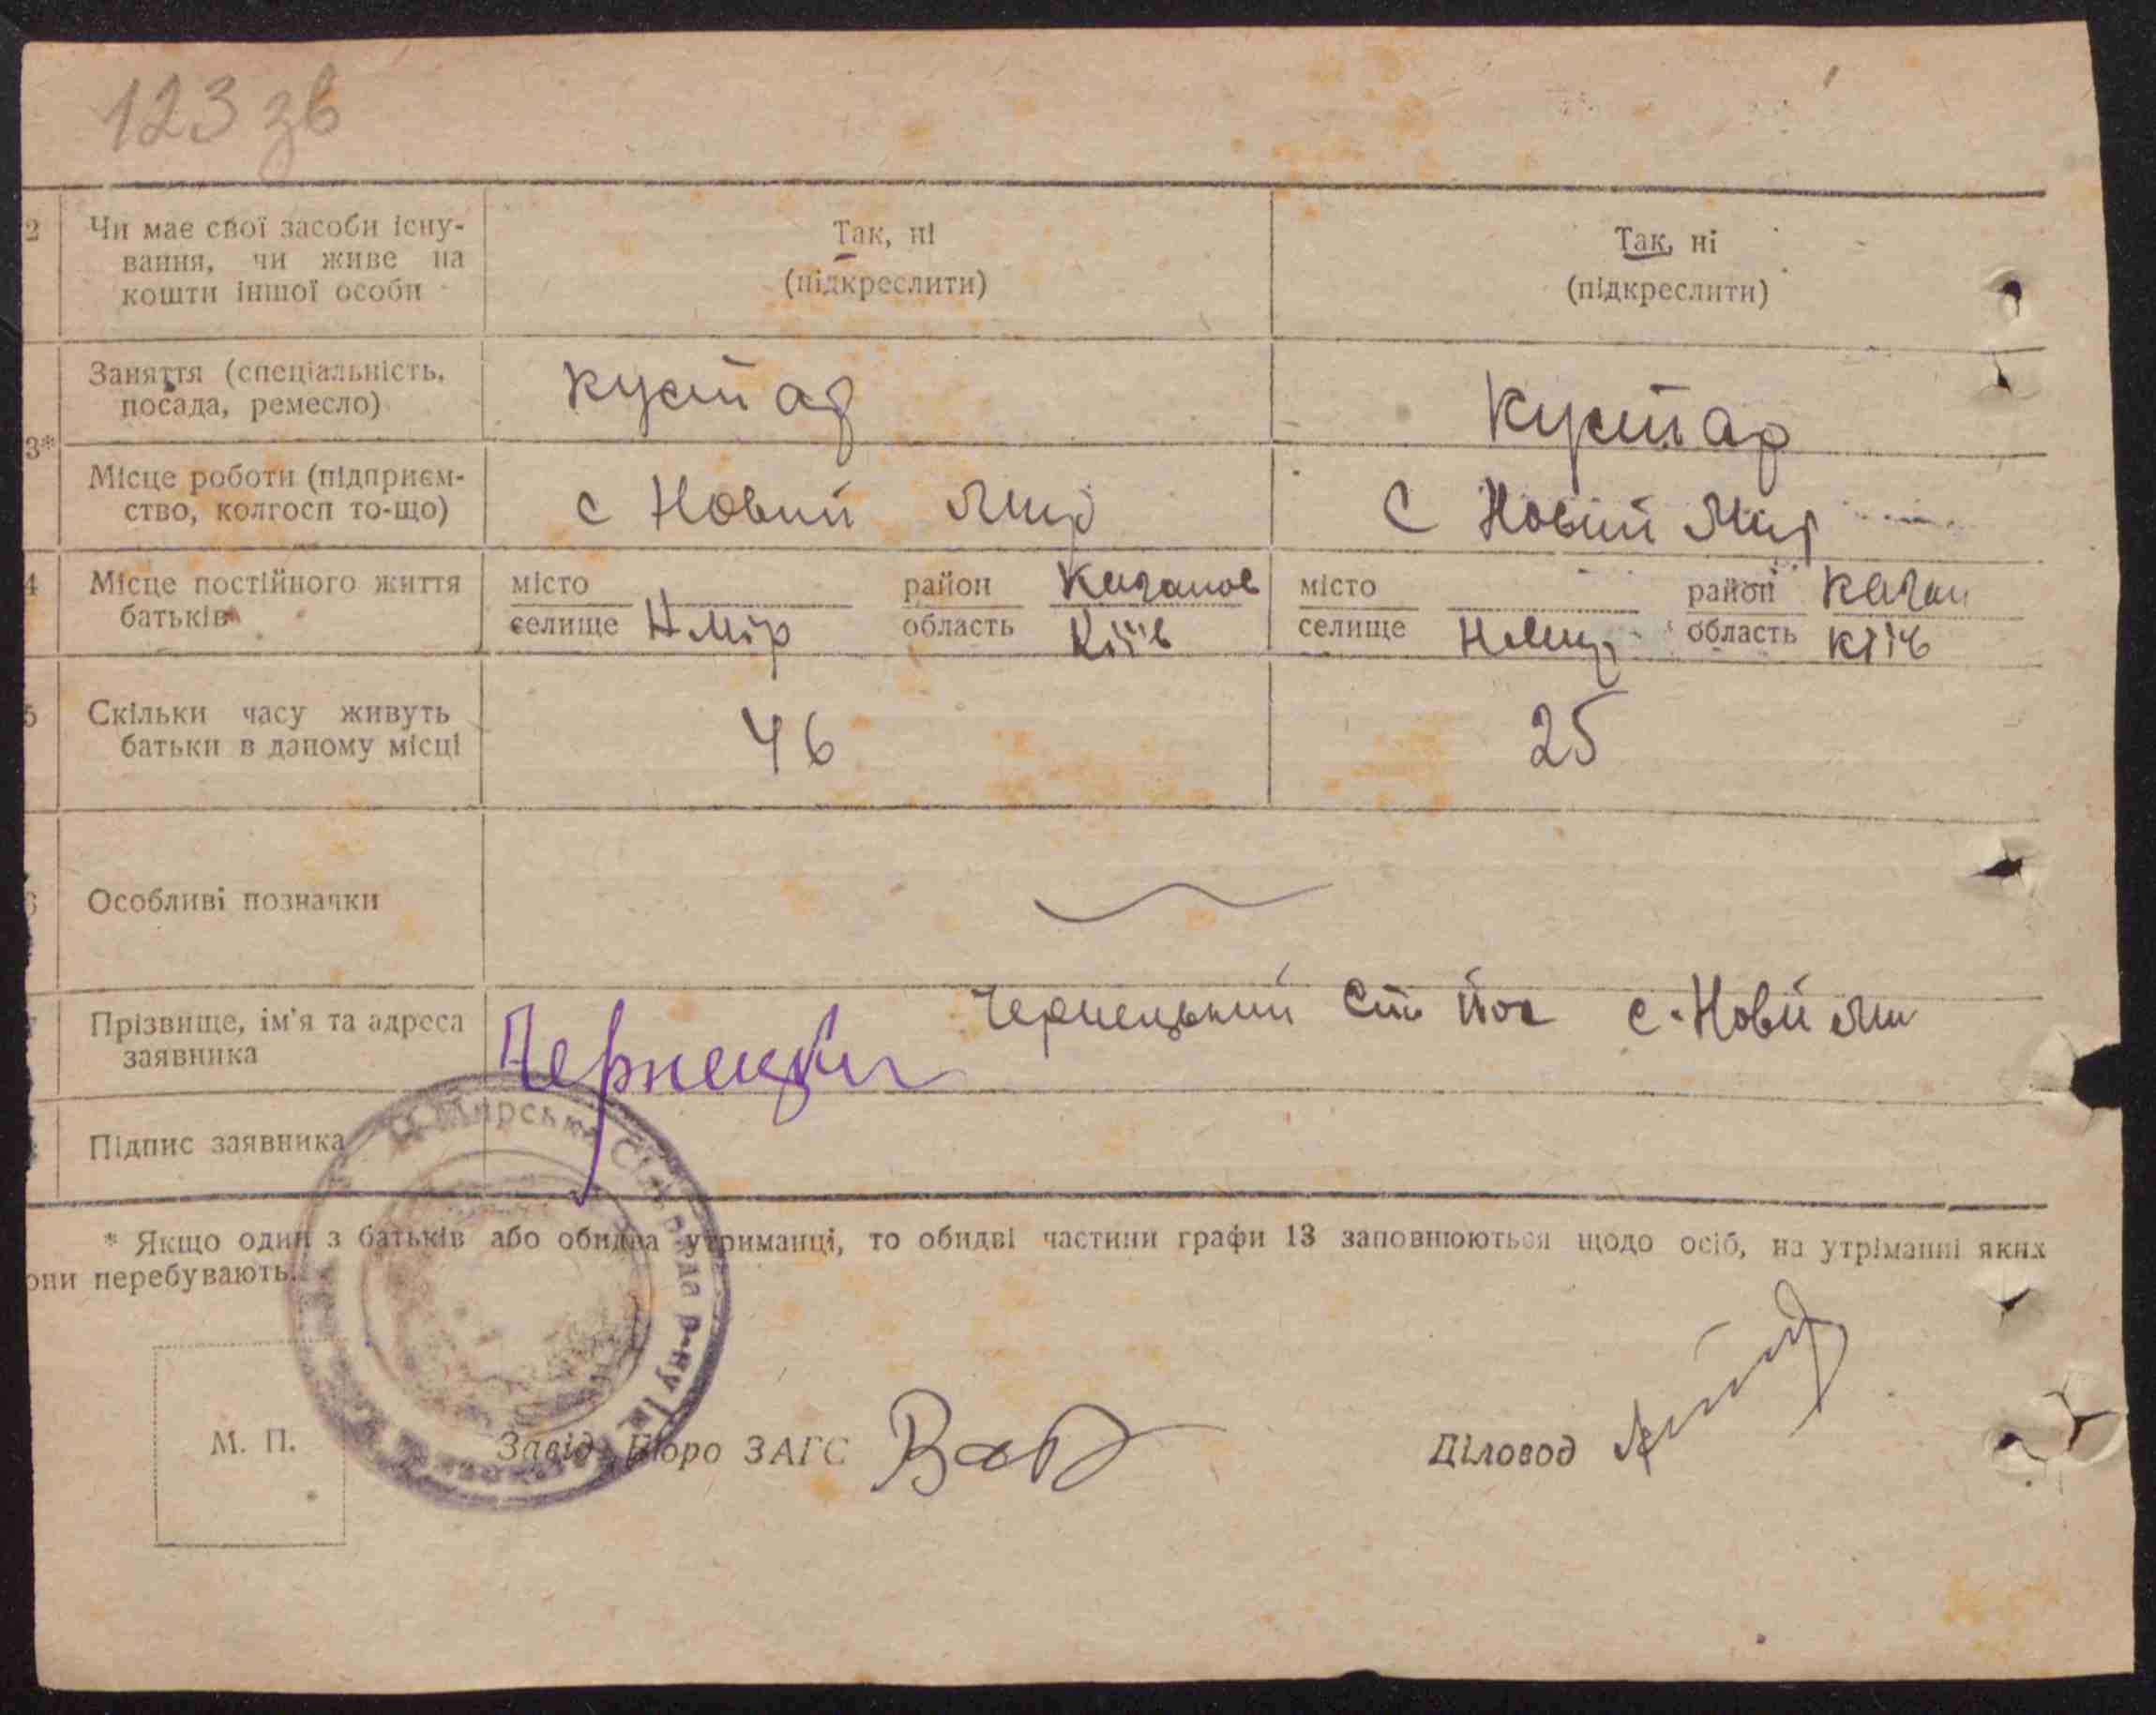 123 зв
2 Чи має свої засоби існу- Так, ні Так, ні
вання, чи живе на
кошти іншої особи (підкреслити) (підкреслити)
Заняття (спеціальність, кустар кустар
посада, ремесло)
3*
Місце роботи (підприєм- с Новий Мир С Новий Мир
ство, колгосп то-що)
4 Місце постійного життя місто район Каганов місто район Каган
батьків селище Н Мір область Київ селище Н Мир область Київ
5 Скільки часу живуть 46 25
батьки в даному місці
6 Особливі позначки
Чернецький Ст Йос с. Новй Ми
Прізвище, ім'я та адреса
заявника Чернецки
Підпис заявника
Мирська Сільрада р-ну
* Якщо один з батьків або обидва утриманці, то обидві частини графи 13 заповнюються щодо осіб, на утріманні яких
они перебувають.
М. П. Завід. Бюро ЗАГС Діловод